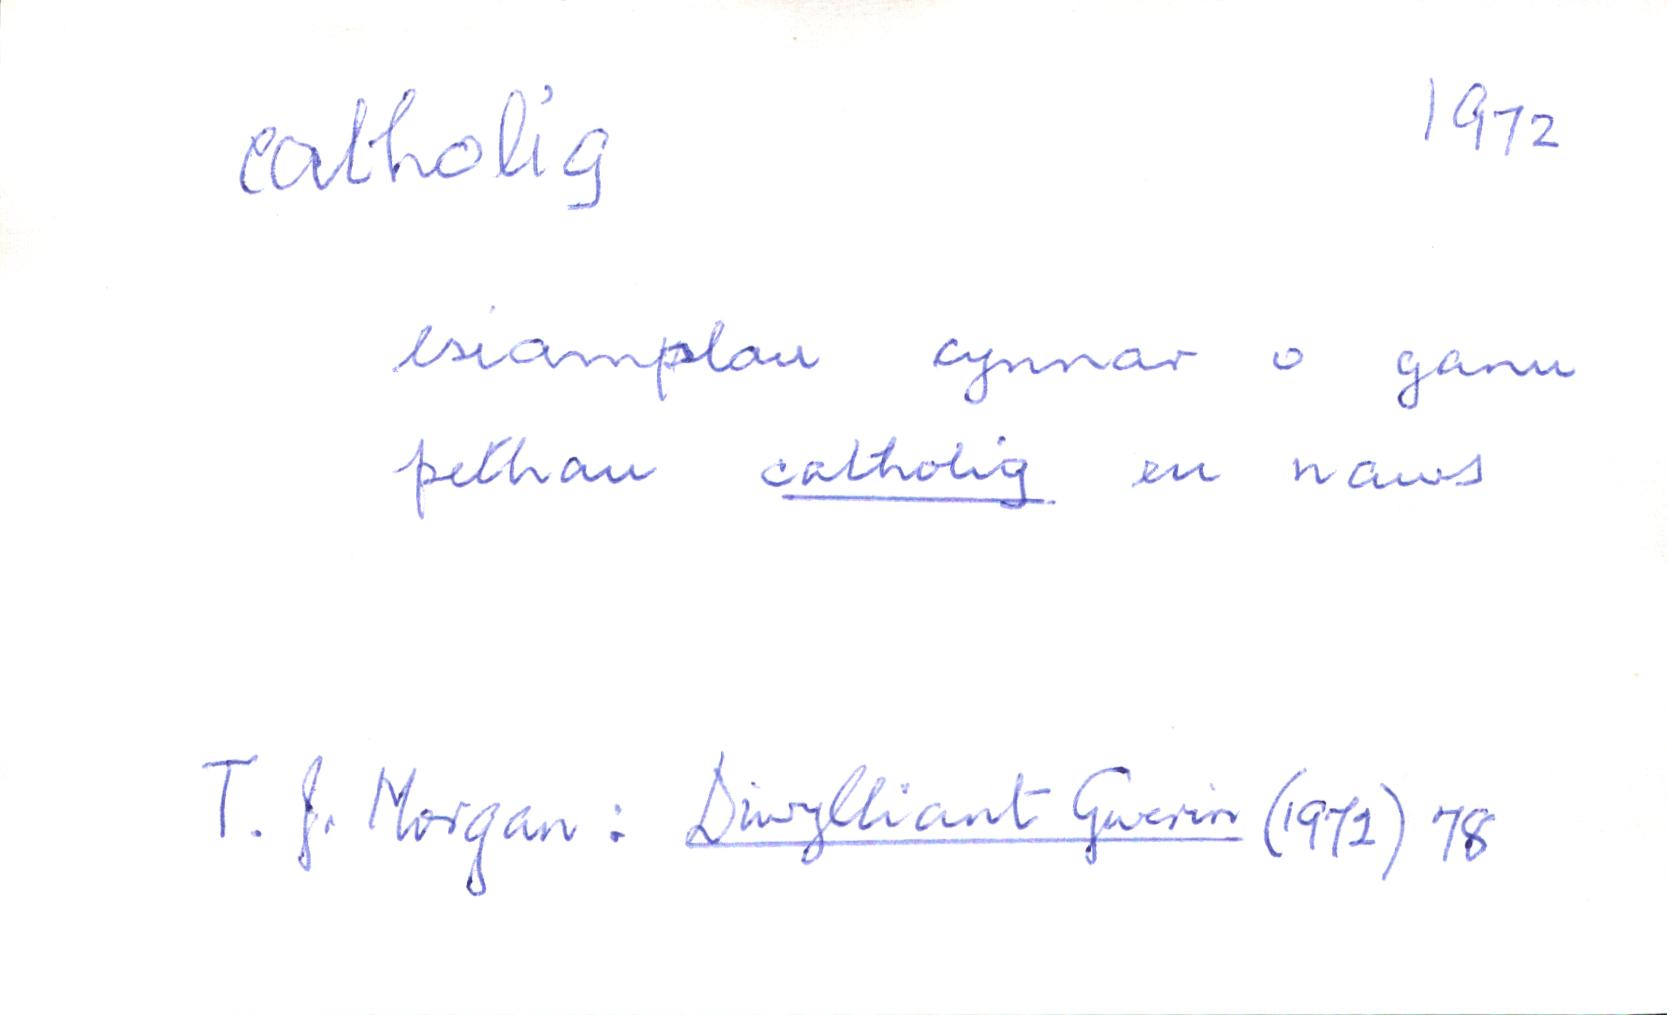 catholig 1972
esiamplau cynnar o ganu
pethau catholig eu naws
T. J. Morgan: Diwylliant Gwerin (1972) 78